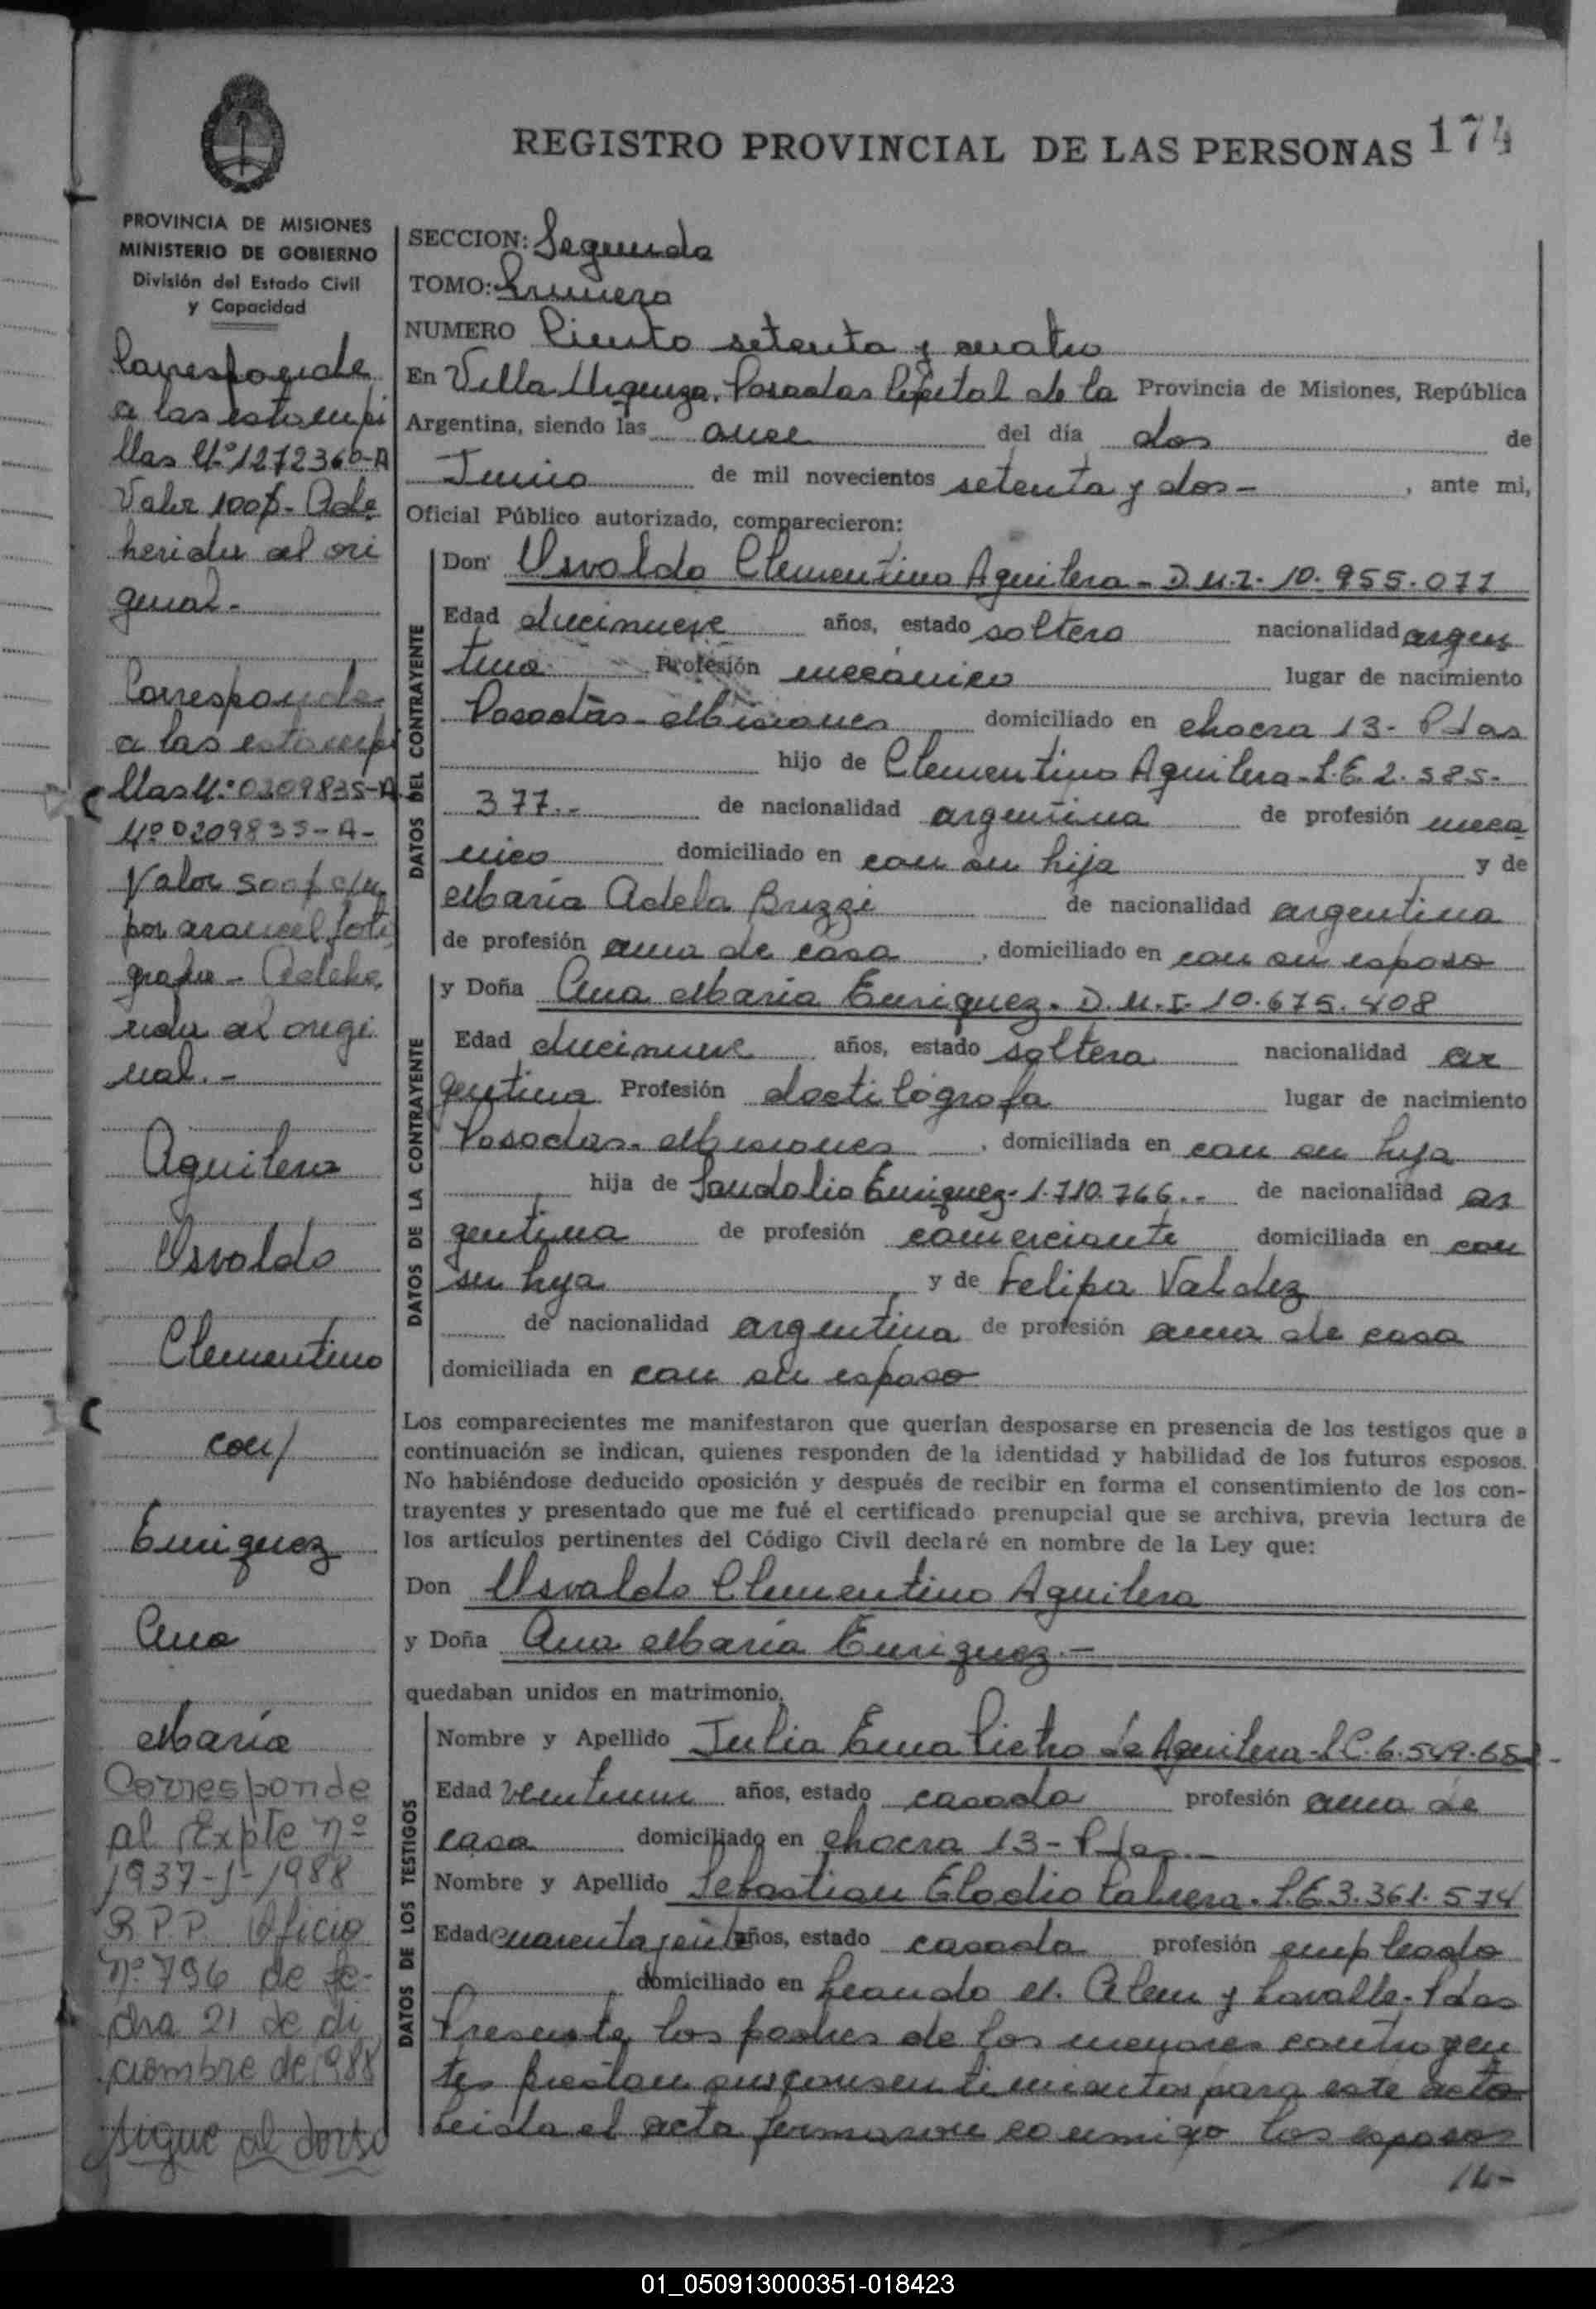 REGISTRO PROVINCIAL DE LAS PERSONAS 174
PROVINCIA DE MISIONES
MINISTERIO DE GOBIERNO
División del Estado Civil
y Capacidad
Corresponde
a las estampi
llas Nº 1272360-A
Valor 100$- Adhe
heridas al ori
ginal.-
Corresponde
a las estampi
llas Nº 0209835-A
Nº 0209835-A-
Valor 500$ c/u.
por arancel foto
grafia - Adhe
ridas al origi
nal.-
Aguilera
Usvaldo
Clementino
con/
Enriquez
Ana
María
Corresponde
al Expte nº
1937-J-1988
R.P.P. Oficio
nº 796 de fe-
cha 21 de di
ciembre de 1988
sigue al dorso
SECCION: Segunda
TOMO: Primero
NUMERO Ciento setenta y cuatro
En Villa Urquiza, Posadas Capital de la Provincia de Misiones, República
Argentina, siendo las once del día dos de
Junio de mil novecientos setenta y dos - , ante mi,
Oficial Público autorizado, comparecieron:
DATOS DEL CONTRAYENTE
Don Usvaldo Clementino Aguilera - D.N.I. 10.955.071
Edad diecinueve años, estado soltero nacionalidad argen
tina Profesión mecánico lugar de nacimiento
Posadas - Misiones domiciliado en chacra 13 - Pdas
hijo de Clementino Aguilera - L.E. 2.585.
377.- de nacionalidad argentina de profesión meca
nico domiciliado en con su hijo y de
María Adela Buzzi de nacionalidad argentina
de profesión ama de casa , domiciliado en con su esposo
DATOS DE LA CONTRAYENTE
y Doña Ana María Enriquez - D.N.I. 10.675.408
Edad diecinueve años, estado soltera nacionalidad ar
gentina Profesión dactilógrafa lugar de nacimiento
Posadas - Misiones , domiciliada en con su hija
hija de Sandalio Enriquez - 1.710.766.- de nacionalidad ar
gentina de profesión comerciante domiciliada en con
su hija y de Felipa Valdez
de nacionalidad argentina de profesión ama de casa
domiciliada en con su esposo
Los comparecientes me manifestaron que querían desposarse en presencia de los testigos que a
continuación se indican, quienes responden de la identidad y habilidad de los futuros esposos.
No habiéndose deducido oposición y después de recibir en forma el consentimiento de los con-
trayentes y presentado que me fué el certificado prenupcial que se archiva, previa lectura de
los artículos pertinentes del Código Civil declaré en nombre de la Ley que:
Don Usvaldo Clementino Aguilera
y Doña Ana María Enriquez.-
quedaban unidos en matrimonio.
DATOS DE LOS TESTIGOS
Nombre y Apellido Julia Ema Pietro de Aguilera - L.C. 6.549.
Edad veintiun años, estado casada profesión ama de
casa domiciliado en chacra 13 - Pdas.-
Nombre y Apellido Sebastian Eladio Cabrera - L.E. 3.361.574
Edad cuarenta y años, estado casado profesión empleado
domiciliado en Leandro N. Alem y Lavalle - Pdas
Presente los padres de los menores contrayen
tes prestan sus consentimientos para este acto
Leida el acta firmaron conmigo los esposos
//-
01_050913000351-018423